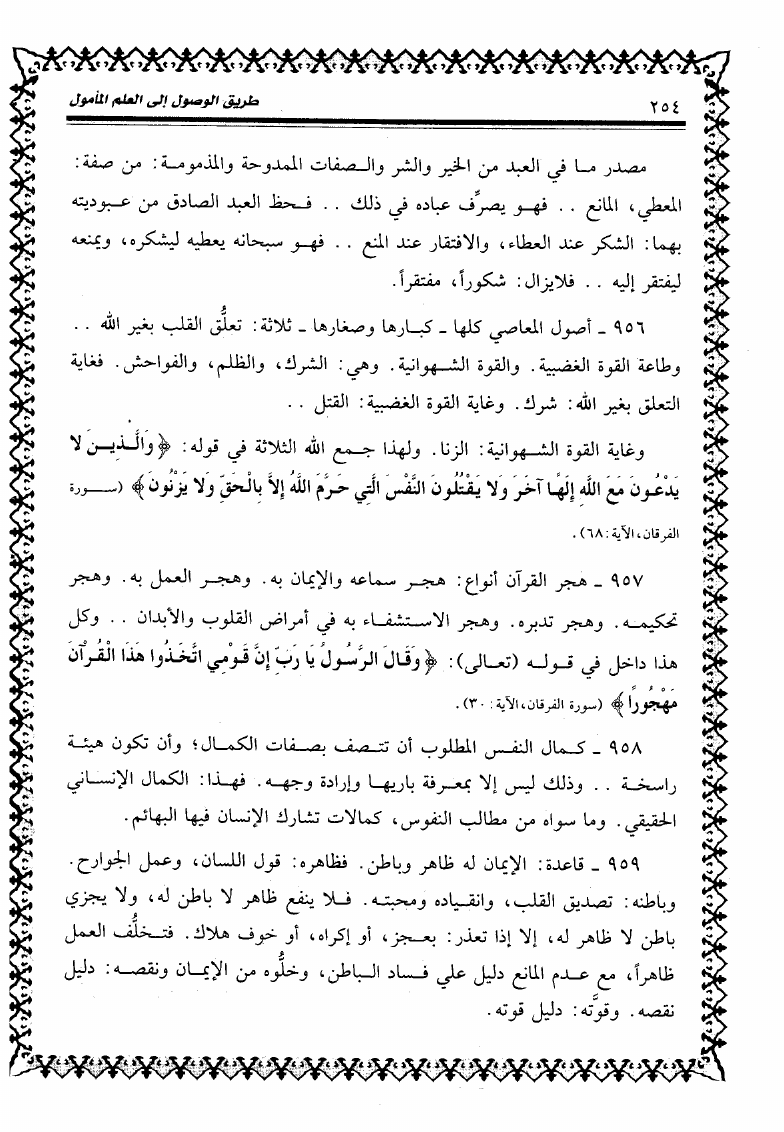 ٢٥٤
طريق الوصول إلى العلم المأمول
مصدر ما في العبد من الخير والشر والصفات الممدوحة والمذمومة: من صفة:
المعطي، المانع . . فهو يصرِّف عباده في ذلك . . فحظ العبد الصادق من عبوديته
بهما: الشكر عند العطاء، والافتقار عند المنع . . فهو سبحانه يعطيه ليشكره، ويمنعه
ليفتقر إليه . . فلايزال: شكوراً، مفتقراً.
٩٥٦ ـ أصول المعاصي كلها ـ كبارها وصغارها ـ ثلاثة: تعلُّق القلب بغير الله . .
وطاعة القوة الغضبية. والقوة الشهوانية. وهي: الشرك، والظلم، والفواحش. فغاية
التعلق بغير الله: شرك. وغاية القوة الغضبية: القتل . .
وغاية القوة الشهوانية: الزنا. ولهذا جمع الله الثلاثة في قوله: ﴿وَالَّذِينَ لا
يَدْعُونَ مَعَ اللَّهِ إِلَهًا آخَرَ وَلا يَقْتُلُونَ النَّفْسَ الَّتِي حَرَّمَ اللَّهُ إِلاَّ بِالْحَقِّ وَلا يَزْنُونَ﴾ (سورة
الفرقان، الآية: ٦٨).
٩٥٧ ـ هجر القرآن أنواع: هجر سماعه والإيمان به. وهجر العمل به. وهجر
تحكيمه. وهجر تدبره. وهجر الاستشفاء به في أمراض القلوب والأبدان . . وكل
هذا داخل في قوله (تعالى): ﴿وَقَالَ الرَّسُولُ يَا رَبِّ إِنَّ قَوْمِي اتَّخَذُوا هَذَا الْقُرْآنَ
مَهْجُوراً﴾ (سورة الفرقان، الآية: ٣٠).
٩٥٨ ـ كمال النفس المطلوب أن تتصف بصفات الكمال؛ وأن تكون هيئة
راسخة . . وذلك ليس إلا بمعرفة باريها وإرادة وجهه. فهذا: الكمال الإنساني
الحقيقي. وما سواه من مطالب النفوس، كمالات تشارك الإنسان فيها البهائم.
٩٥٩ ـ قاعدة: الإيمان له ظاهر وباطن. فظاهره: قول اللسان، وعمل الجوارح.
وباطنه: تصديق القلب، وانقياده ومحبته. فلا ينفع ظاهر لا باطن له، ولا يجزي
باطن لا ظاهر له، إلا إذا تعذر: بعجز، أو إكراه، أو خوف هلاك. فتخلُّف العمل
ظاهراً، مع عدم المانع دليل علي فساد الباطن، وخلُّوه من الإيمان ونقصه: دليل
نقصه. وقوَّته: دليل قوته.